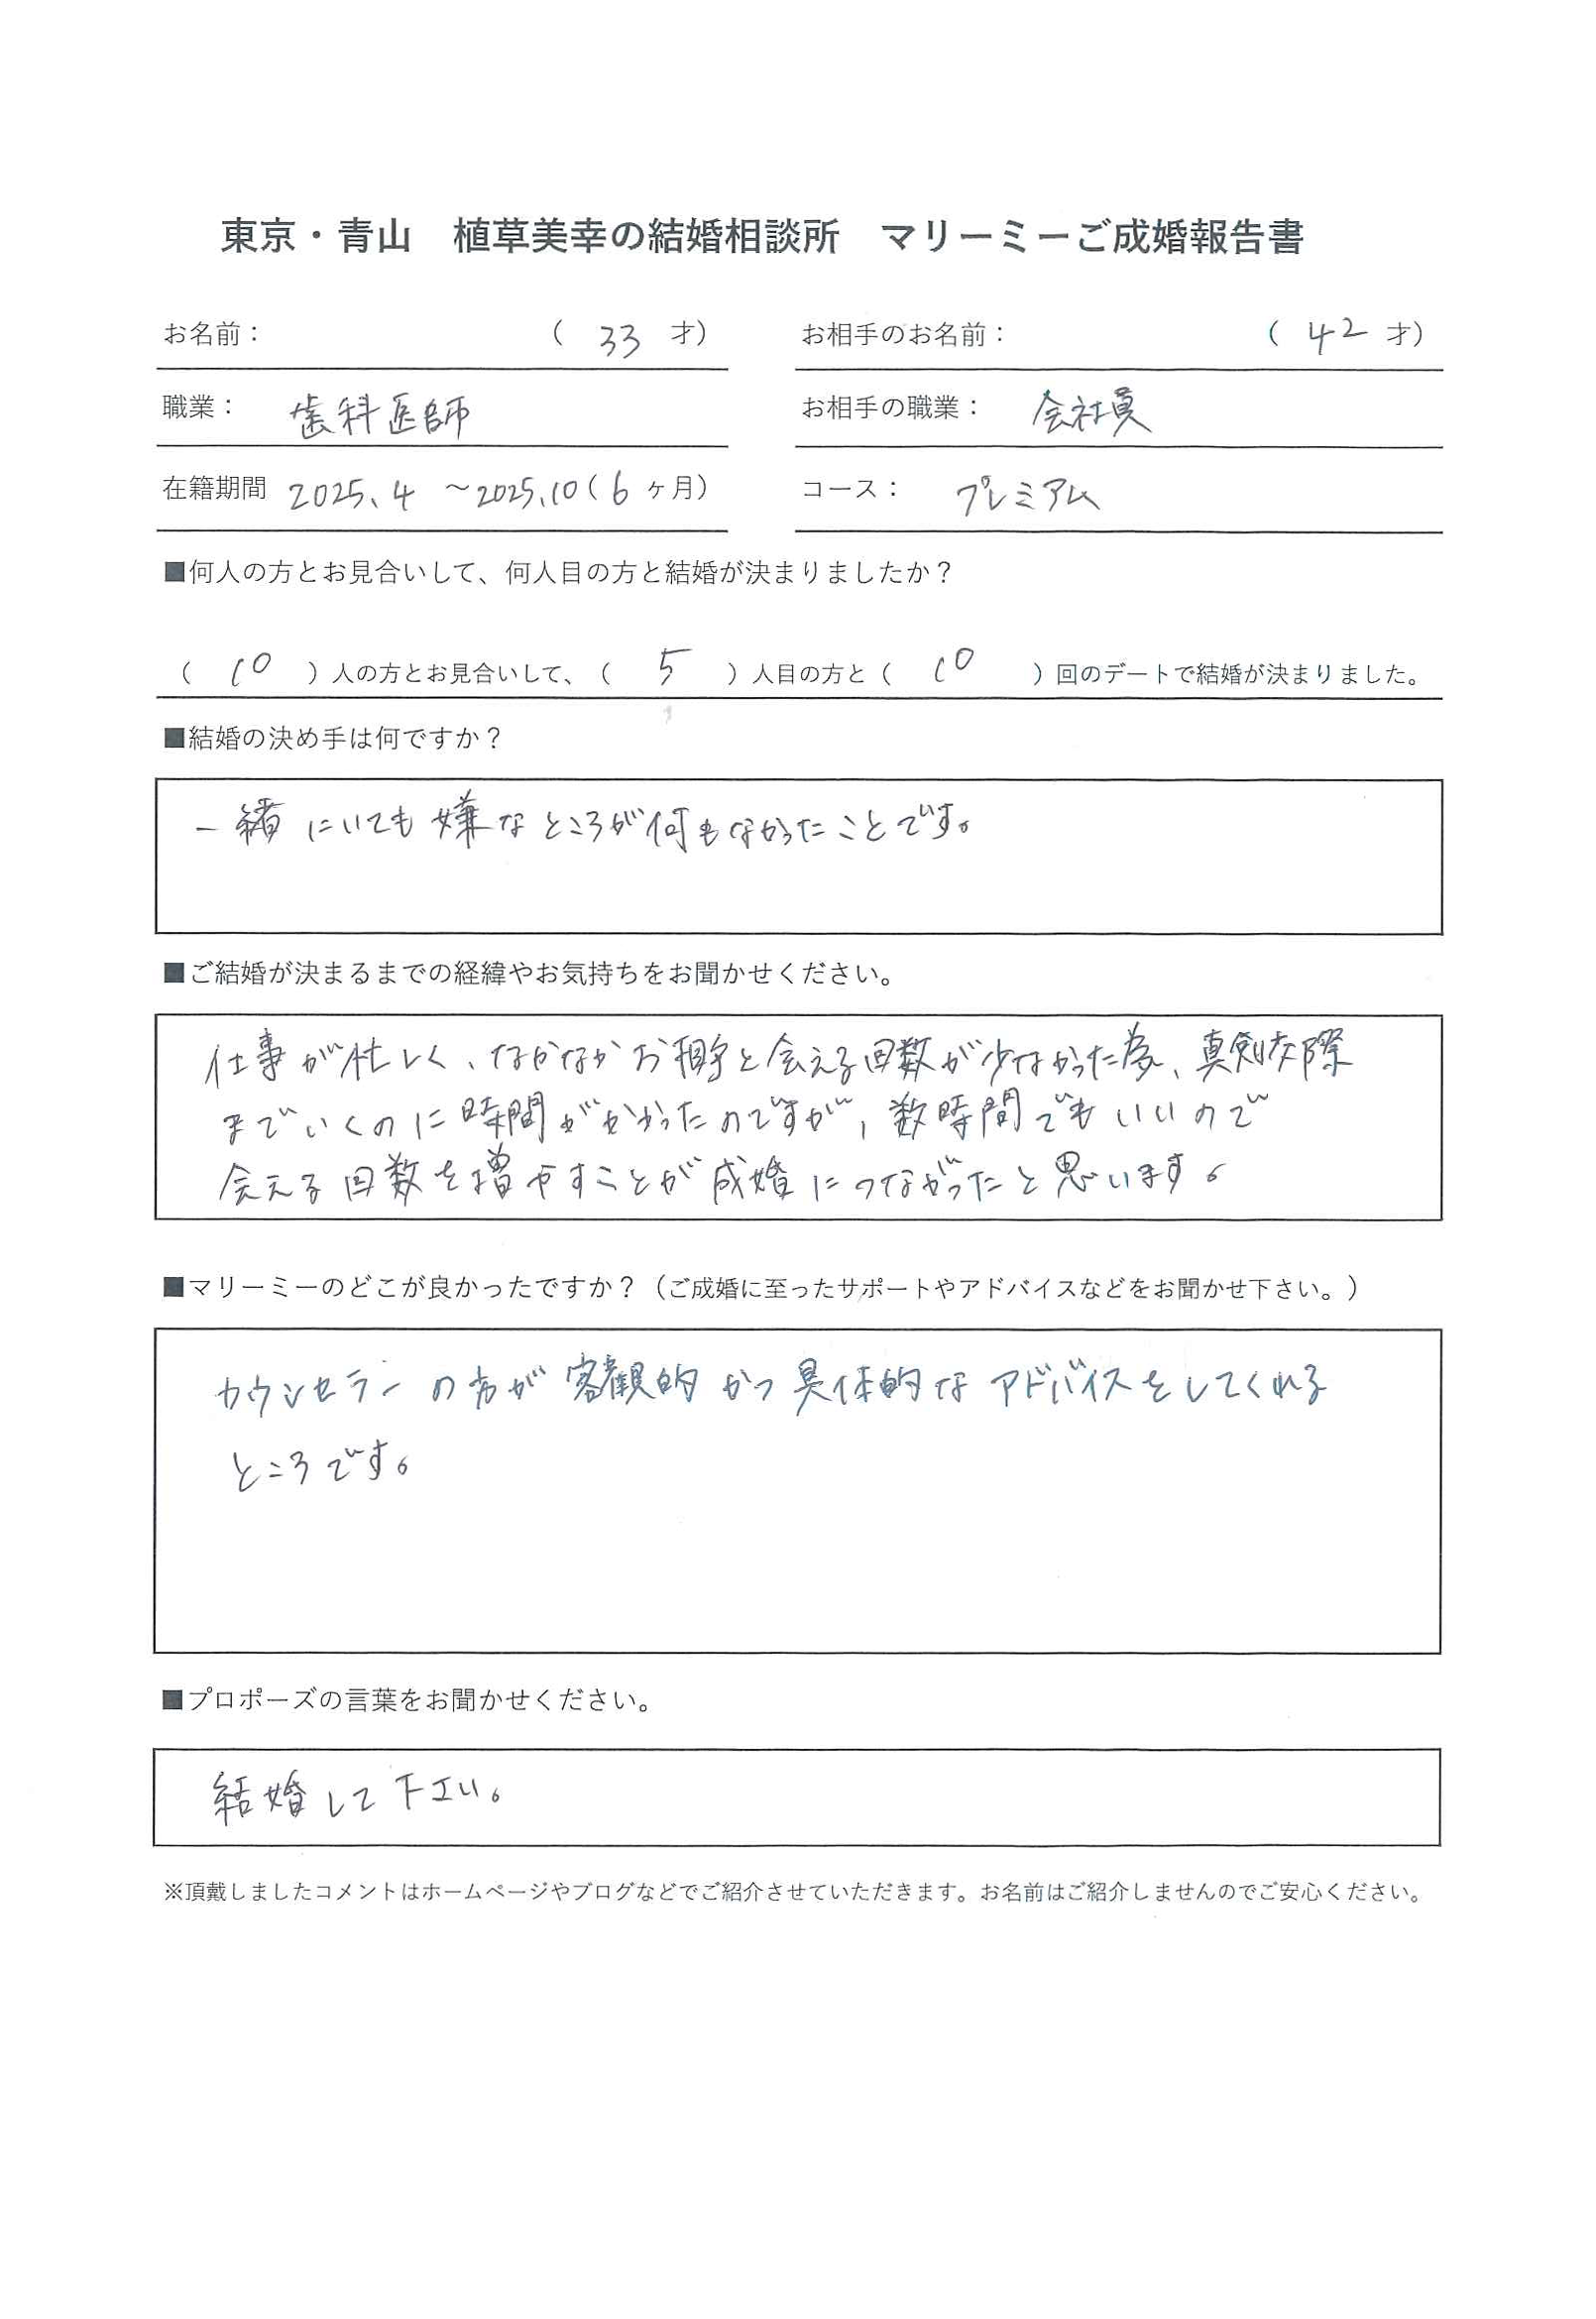 東京・青山　植草美幸の結婚相談所　マリーミーご成婚報告書
お名前：　（ 33 才）　お相手のお名前：　（ 42 才）
職業：　歯科医師　お相手の職業：　会社員
在籍期間　2025.4 ～2025.10（6 ヶ月）　コース：　プレミアム
■何人の方とお見合いして、何人目の方と結婚が決まりましたか？
（ 10 ）人の方とお見合いして、（ 5 ）人目の方と（ 10 ）回のデートで結婚が決まりました。
■結婚の決め手は何ですか？
一緒にいても嫌なところが何もなかったことです。
■ご結婚が決まるまでの経緯やお気持ちをお聞かせください。
仕事が忙しく、なかなかお相手と会える回数が少なかった為、真剣交際
までいくのに時間がかかったのですが、数時間でもいいので
会える回数を増やすことが成婚につながったと思います。
■マリーミーのどこが良かったですか？（ご成婚に至ったサポートやアドバイスなどをお聞かせ下さい。）
カウンセラーの方が客観的かつ具体的なアドバイスをしてくれる
ところです。
■プロポーズの言葉をお聞かせください。
結婚して下さい。
※頂戴しましたコメントはホームページやブログなどでご紹介させていただきます。お名前はご紹介しませんのでご安心ください。